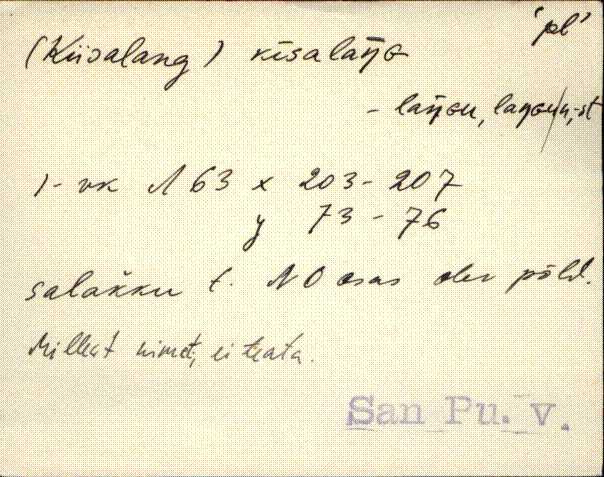 'pl'
(Kiisalang) kīsalaŋɢ
- laŋɢu, laŋɢu, -st
1 - vk N 63 x 203 - 207
y 73 - 76
salakku t. NO osas olev põld.
Millest nimet, ei teata.
San Pu. v.